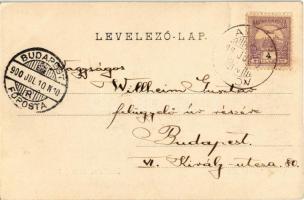 LEVELEZŐ-LAP.
BUDAPEST
900 JUL. 10 N 10
FŐPOSTA
Nagyságos
Willheim Gusztáv
felügyelő úr részére
Budapest.
VI. Király-utcza. 80.